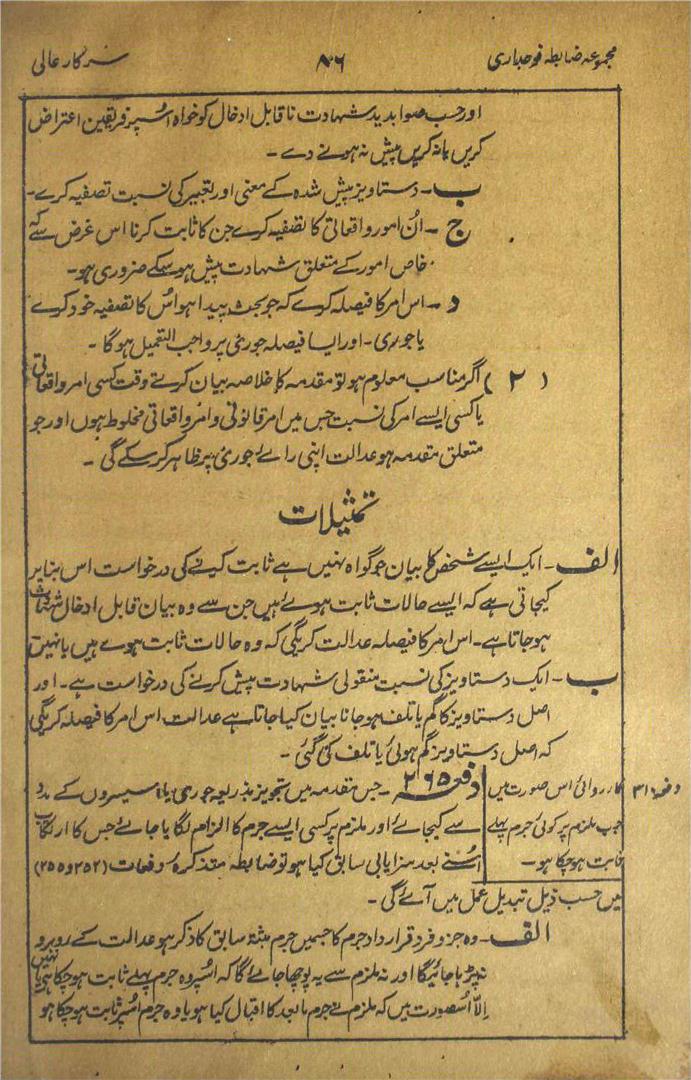 مجموعہ ضابطہ فوجداری ۸۶ سرکار عالی
اور حسب صوابدید شہادت ناقابل ادخال کو خواہ اُسپر فریقین اعتراض
کریں یا نہ کریں پیش نہ ہونے دے ۔
ب ۔ دستاویز پیش شدہ کے معنی اور تعبیر کی نسبت تصفیہ کرے ۔
ج ۔ اُن امور واقعاتی کا تصفیہ کرے جن کا ثابت کرنا اس غرض سے کہ
خاص امور کے متعلق شہادت پیش ہوسکے ضروری ہو ۔
د ۔ اس امر کا فیصلہ کرے کہ جو بحث پیدا ہو اُس کا تصفیہ خود کرے
یا جوری ۔ اور ایسا فیصلہ جوری پر واجب التعمیل ہوگا ۔
( ۲ ) اگر مناسب معلوم ہو تو مقدمہ کا خلاصہ بیان کرتے وقت کسی امر واقعاتی
یا کسی ایسے امر کی نسبت جس میں امر قانونی و امر واقعاتی مخلوط ہوں اور جو
متعلق مقدمہ ہو عدالت اپنی رائے جوری پر ظاہر کرسکے گی ۔
تمثیلات
الف ۔ ایک ایسے شخص کا بیان جو گواہ نہیں ہے ثابت کرنے کی درخواست اس بنا پر
کیجاتی ہے کہ ایسے حالات ثابت ہوئے ہیں جن سے وہ بیان قابل ادخال شہادت
ہوجاتا ہے ۔ اس امر کا فیصلہ عدالت کریگی کہ وہ حالات ثابت ہوے ہیں یا نہیں
ب ۔ ایک دستاویز کی نسبت منقولی شہادت پیش کرنے کی درخواست ہے ۔ اور
اصل دستاویز کا گم یا تلف ہوجانا بیان کیا جاتا ہے عدالت اس امر کا فیصلہ کریگی
کہ اصل دستاویز گم ہوئی یا تلف کی گئی ۔
دفعہ ۳۱ کارروائی اس صورت میں
جب ملزم پر کوئی جرم پہلے
ثابت ہوچکا ہو ۔
دفعہ ۲۶۵ ۔ جس مقدمہ میں تجویز بذریعہ جوری یا اسیسروں کے مدد
سے کیجائے اور ملزم پر کسی ایسے جرم کا الزام لگایا جائے جس کا ارتکاب
اُسنے بعد سزایابی سابق کیا ہو تو ضابطہ متذکرہ دفعات (۲۵۲ و ۲۵۵)
میں حسب ذیل تبدیل عمل میں آئے گی ۔
الف ۔ وہ جزو فرد قرارداد جرم کا جسمیں جرم مثبتہ سابق کا ذکر ہو عدالت کے روبرو
نہ پڑہا جائیگا اور نہ ملزم سے یہ پوچھا جائے گا کہ اُسپر وہ جرم پہلے ثابت ہوچکا ہے یا نہیں
اِلّا اُسصورت میں کہ ملزم نے جرم مابعد کا اقبال کیا ہو یا وہ جرم اُسپر ثابت ہوچکا ہو